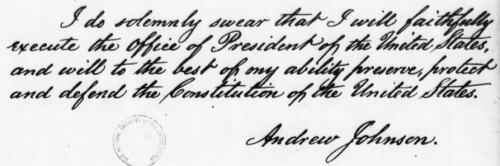 I do solemnly swear that I will faithfully
execute the Office of President of the United States,
and will to the best of my ability preserve, protect
and defend the Constitution of the United States.
Andrew Johnson.